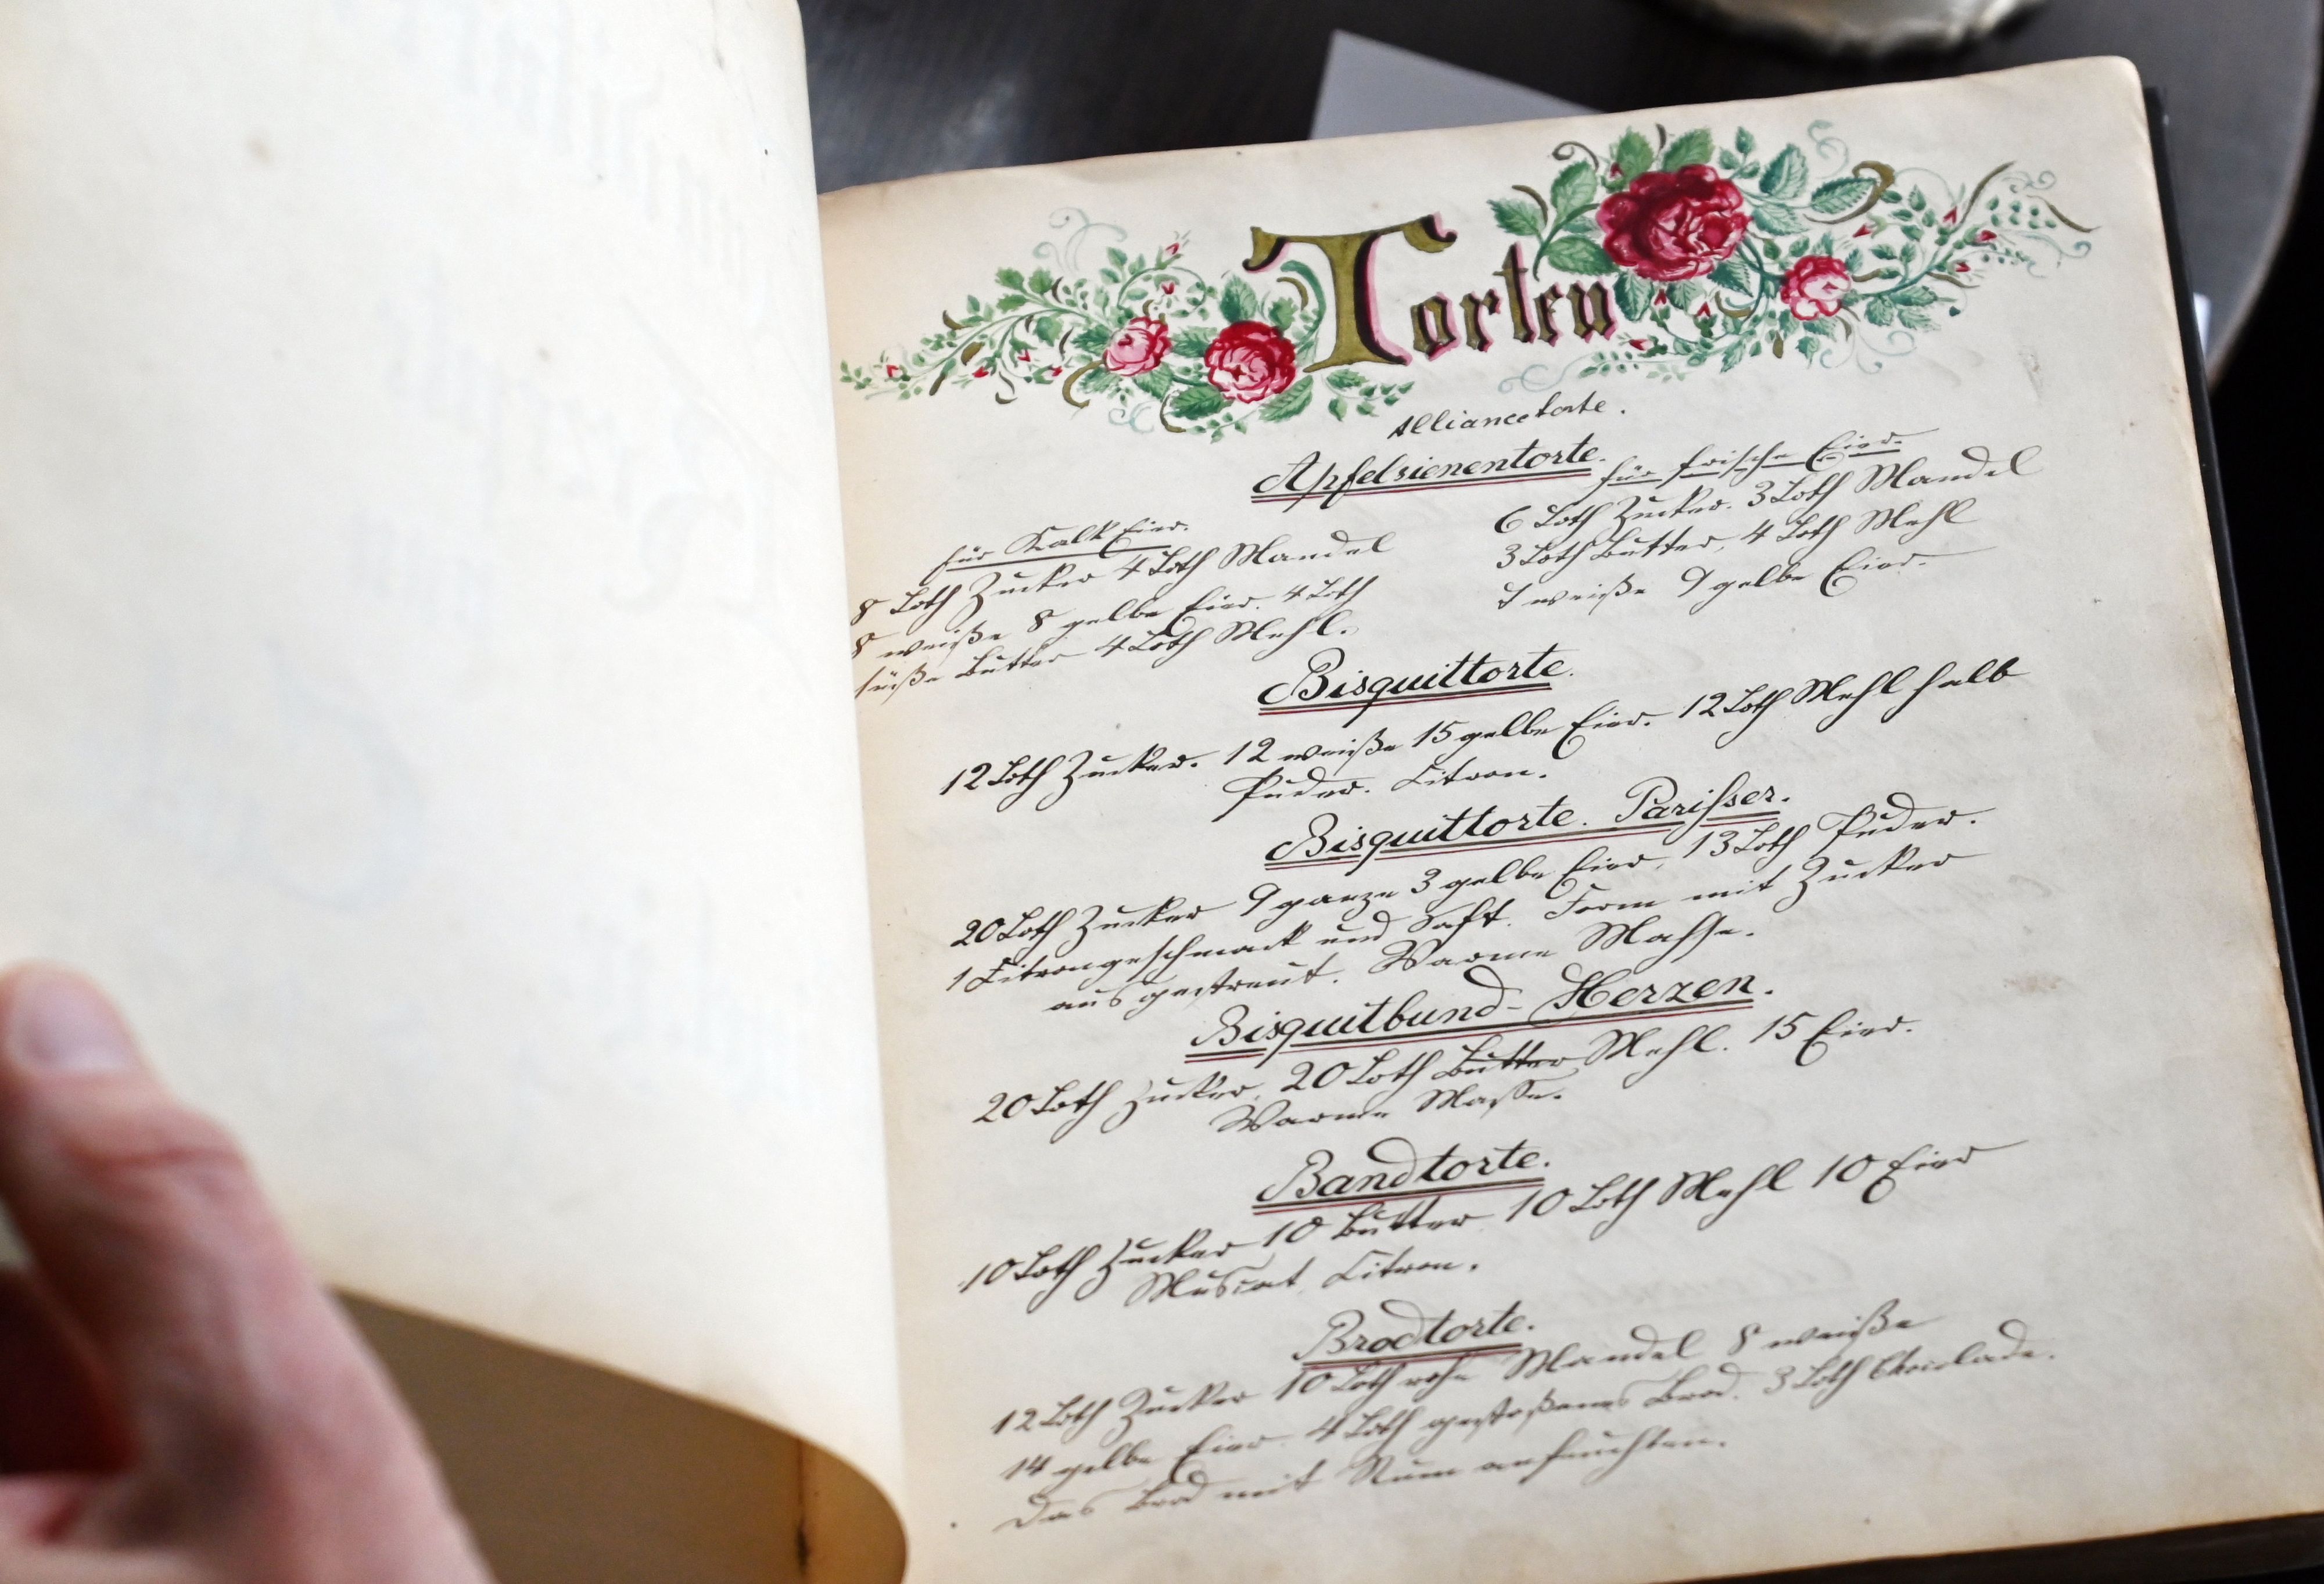 Torten
Alliancetorte.
Apfelsienentorte.
für Kalk Eier.
8 Loth Zucker 4 Loth Mandel
8 weiße 8 gelbe Eier. 4 Loth
süße Butter 4 Loth Mehl.
für frische Eier.
6 Loth Zucker. 3 Loth Mandel
3 Loth Butter, 4 Loth Mehl
weiße 9 gelbe Eier.
Bisquittorte.
12 Loth Zucker. 12 weiße 15 gelbe Eier. 12 Loth Mehl halb
Puder. Citron.
Bisquittorte. Parisser.
20 Loth Zucker 9 ganze 3 gelbe Eier, 13 Loth Puder.
1 Citrongeschmack und Saft. Form mit Zucker
ausgestreut. Warme Masse.
Bisquitbund-Herzen.
20 Loth Zucker, 20 Loth Butter Mehl. 15 Eier.
Warme Masse.
Bandtorte.
10 Loth Zucker 10 Butter 10 Loth Mehl 10 Eier
Muscat, Citron.
Brodtorte.
12 Loth Zucker 10 Loth rohe Mandel 8 weiße
14 gelbe Eier 4 Loth gestoßenes Brod. 3 Loth Chocolade.
Das Brod mit Rum anfeuchten.